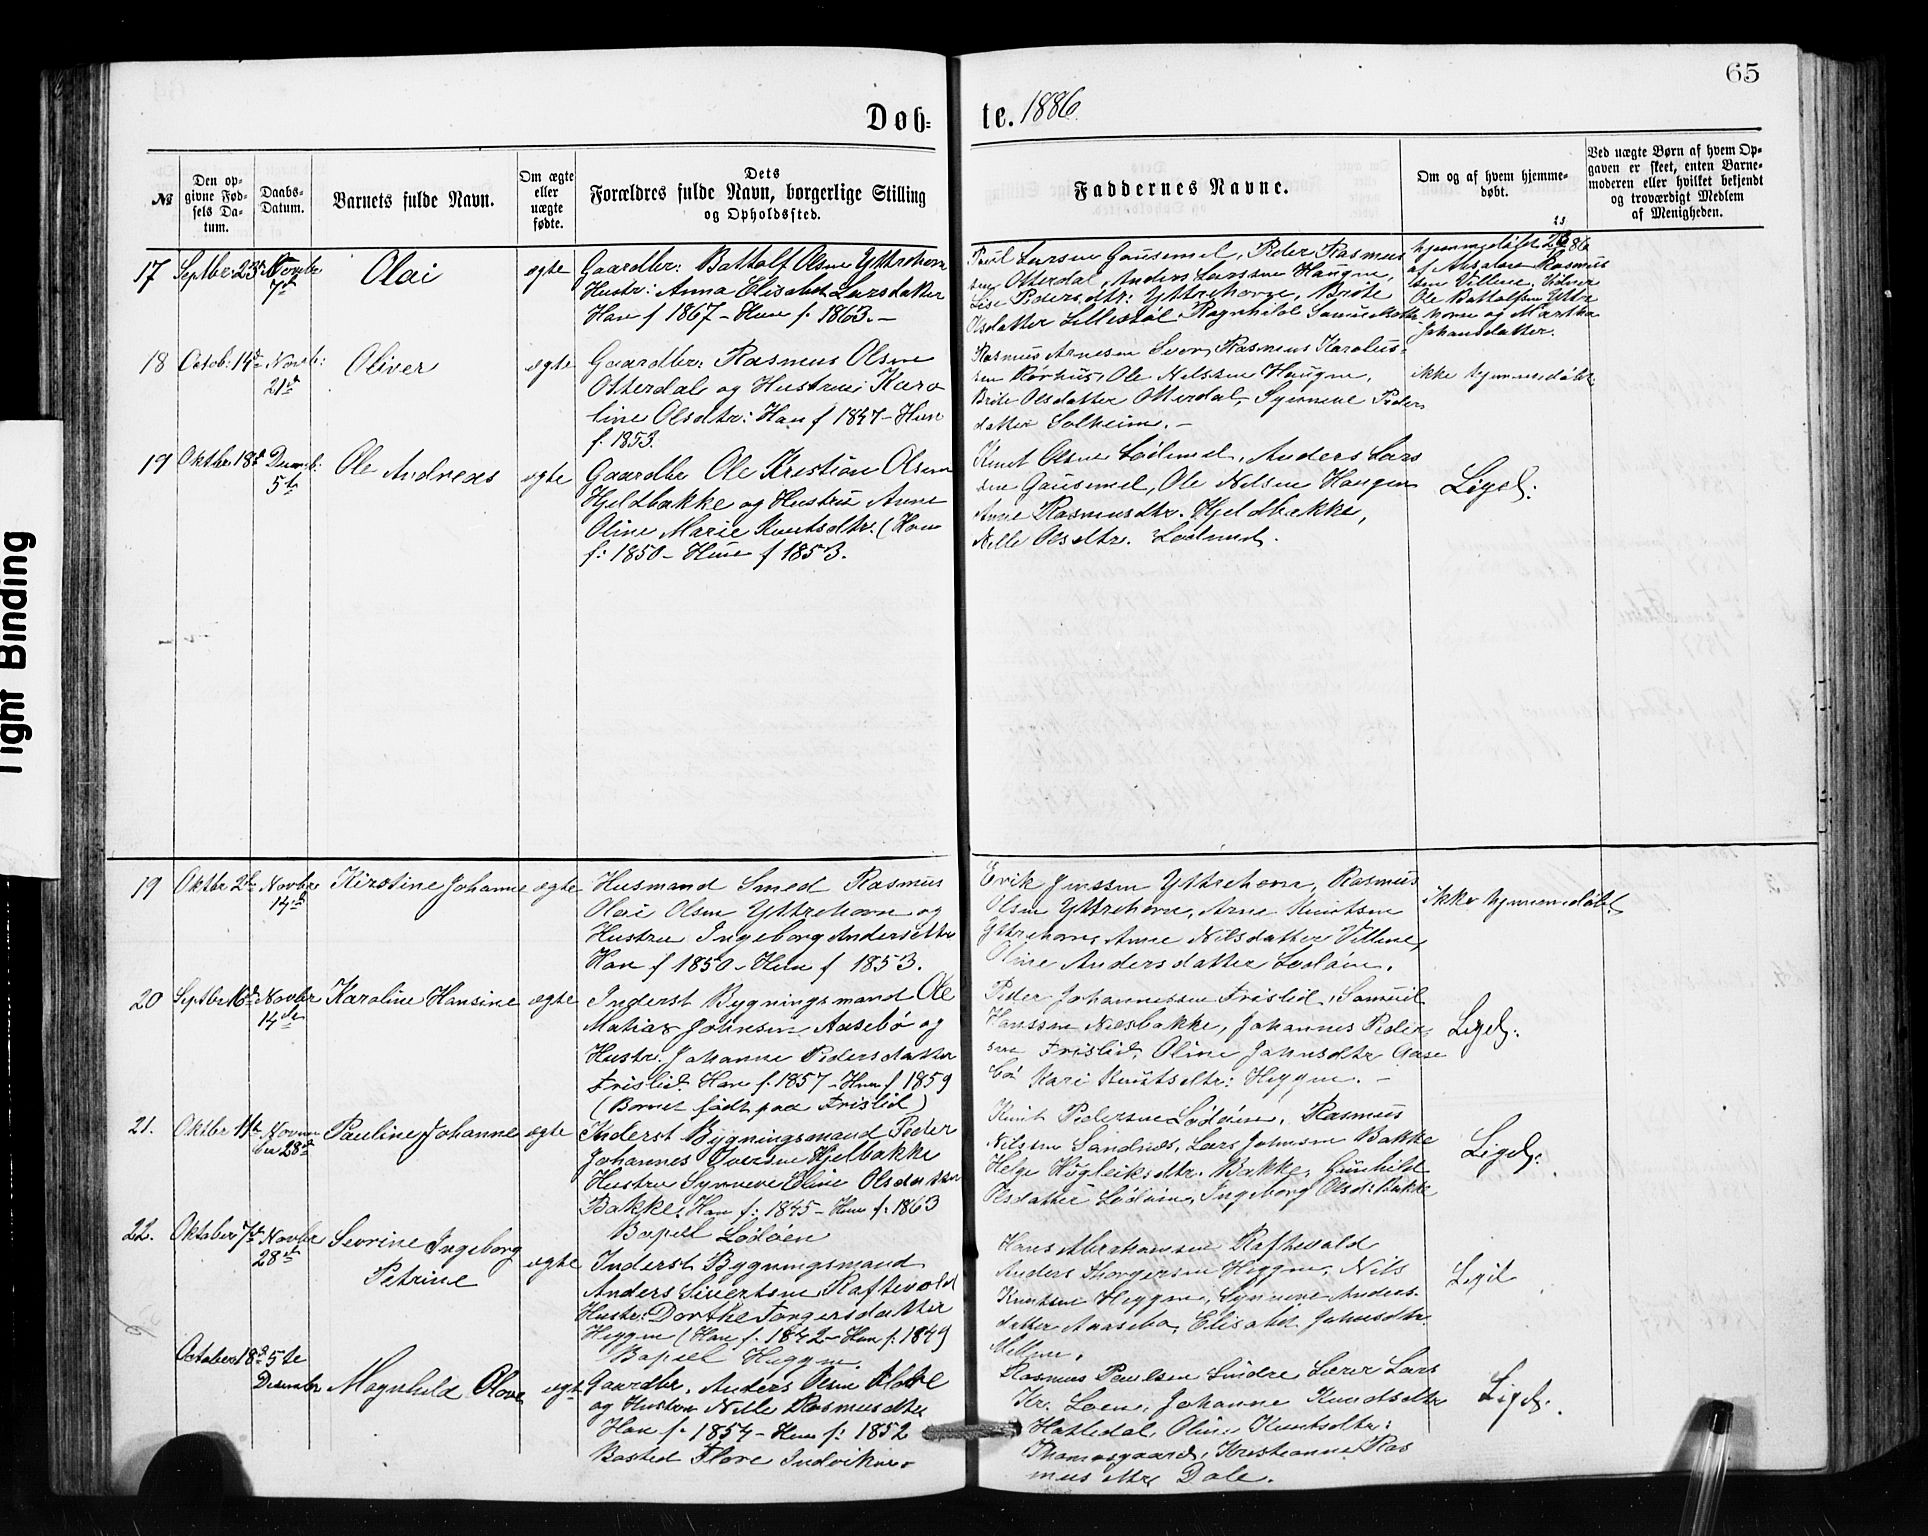 65
Døb-
te. 1886.
№
Den op-
givne Fød-
sels Da-
tum.
Daabs-
Datum.
Barnets fulde Navn.
Om ægte
eller
uægte
fødte.
Dets
Forældres fulde Navn, borgerlige Stilling
og Opholdssted.
Faddernes Navne.
Om og af hvem hjemme-
døbt.
Ved uægte Børn af hvem Op-
gaven er skeet, enten Barne-
moderen eller hvilket betjendt
og troværdigt Medlem
af Menigheden.
17
Septbr 23d
Novbr
7de
Olai
ægte
Gaardbr: Battolf Olsen Yttrehorn
Hustr: Anna Elisabet Larsdatter
Han f 1867 - Hun f. 1863. -
Poul Larsen Gausemel, Peder Rasmus
sen Otterdal, Anders Larssen Haugen,
Lise Pedersdtr: Yttrehorne, Brite
Olsdatter Lillestøl Ragnhild
hjemmedøbt 86
af Rasmus
sen Villene,
Ole Battolfsen Yttre
horn og Martha
Johansdatter.
18
Octob: 14de
Novb:
21de
Oliver
ægte
Gaardbr: Rasmus Olsen
Otterdal og Hustru: Karo
line Olsdtr: Han f 1847 - Hun
f. 1853.
Rasmus Arnesen Sven, Rasmus Karolus-
sen Rørhus, Ole Nilssen Haugen,
Brite Olsdatter Otterdal, Synneve Peders
datter Solheim. -
ikke hjemmedøbt
19
Oktbr 18de
Decemb:
5te
Ole Andreas
ægte
Gaardbr Ole Kristian Olsen
Hjeltbakke og Hustru Anne
Oline Marie Knutsdtr. (Han
f: 1850 - Hun f 1853.
Knut Olsen Lødemel, Anders Lars
sen Gausemel, Ole Nilsen Haugen
Anne Rasmusdtr. Hjeltbakke,
Nille Olsdtr. Lødemel.
Ligel:
19
Oktbr 2de
Novbr
14de
Kirstine Johanne
ægte
Husmand Smed Rasmus
Olai Olsen Yttrehorn og
Hustru Ingeborg Andersdtr
Han f 1850 - Hun f 1853.
Erik Jenssen Yttrehorn, Rasmus
Olsen Yttrehorn, Arne Knutsen
Yttrehorn, Anne Nilsdatter Villene,
Oline Andersdatter Lodøin.
ikke hjemmedøbt
20
Septbr 16de
Novbr
14de
Karoline Hansine
ægte
Inderst Bygningsmand Ole
Matias Johnsen Aasebø og
Hustr. Johanne Pedersdatter
Frislid Han f. 1857 - Hun f 1859
(Barnet født paa Frislid)
Peder Johannessen Frislid, Samuel
Hanssen Nesbakke, Johannes Peder
sen Frislid, Oline Johnsdtr Aase
bø Kari Knutsdtr: Heggen. -
Ligel:
21.
Oktbr 11te
Novem
ber 28de
Pauline Johanne
ægte
Inderst Bygningsmand Peder
Johannes Iversen Hjelbakke
Hustru Synneve Eline Olsdatter
Bakke. Han f: 1845 - Hun f: 1863
Bopæl Lødøen
Knut Pedersen Lødøen, Rasmus
Nilssen Sandnes, Lars Johnsen Bakke
Helge Høgleiksdtr. Bakke, Gunhild
Olsdatter Lødøin, Ingeborg Olsd: Bakke
Ligel:
22.
Oktober 7de
Novbr
28de
Sevrine Ingeborg
Petrine
ægte
Inderst Bygningsmand
Anders Sivertsen Raftevold
Hustr: Dorthe Torgersdatter
Heggen (Han f. 1842 - Hun f. 1849
Bopæl Heggen.
Hans Abrahamsen Raftevold
Anders Thorgersen Heggen, Nils
Knutsen Heggen, Synneve Anders-
datter Aaasebø, Elisabet Johnsdtr.
Mellem.
Ligel
October 18de
5te
Decembr
Magnhild Olave
ægte
Gaardbr. Anders Olsen
og Hustru Nille Rasmusdtr
Han f. 1854 - Hun f. 1852
Bosted Flore Indviken.
Rasmus Paulsen Sindre Lærer Lars
Kr. Loen, Johanne Knudsdtr
Hattedal, Oline Knutsdtr:
Thomasgaard, Kristianna Ras
mus dtr Dale.
Ligel:
Tight Binding